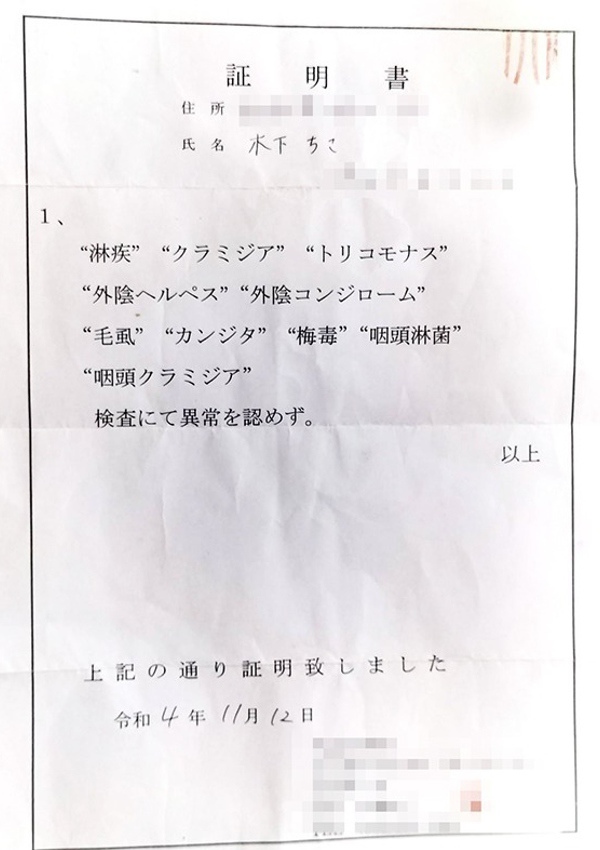 証明書
住所
氏名 木下 ちこ
1、
“淋疾” “クラミジア” “トリコモナス”
“外陰ヘルペス” “外陰コンジローム”
“毛虱” “カンジタ” “梅毒” “咽頭淋菌”
“咽頭クラミジア”
検査にて異常を認めず。
以上
上記の通り証明致しました
令和4年11月12日